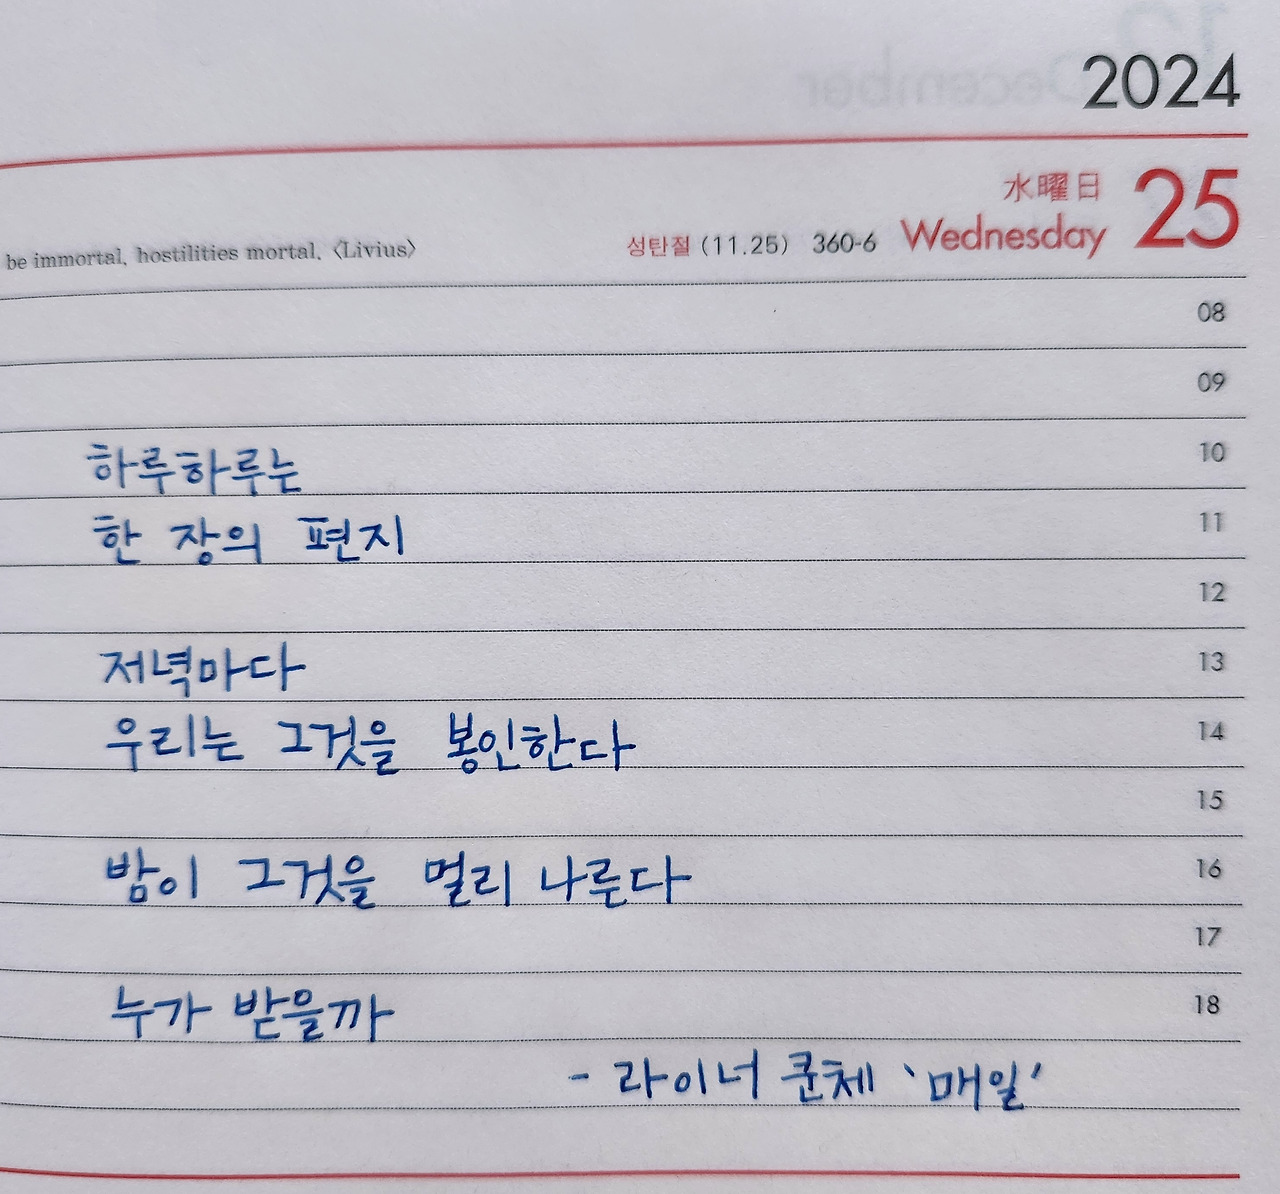 2024
水曜日 25
be immortal, hostilities mortal, 〈Livius〉 성탄절 (11.25) 360-6 Wednesday
08
09
하루하루는 10
한 장의 편지 11
12
저녁마다 13
우리는 그것을 봉인한다 14
15
밤이 그것을 멀리 나른다 16
17
누가 받을까 18
- 라이너 쿤체 '매일'